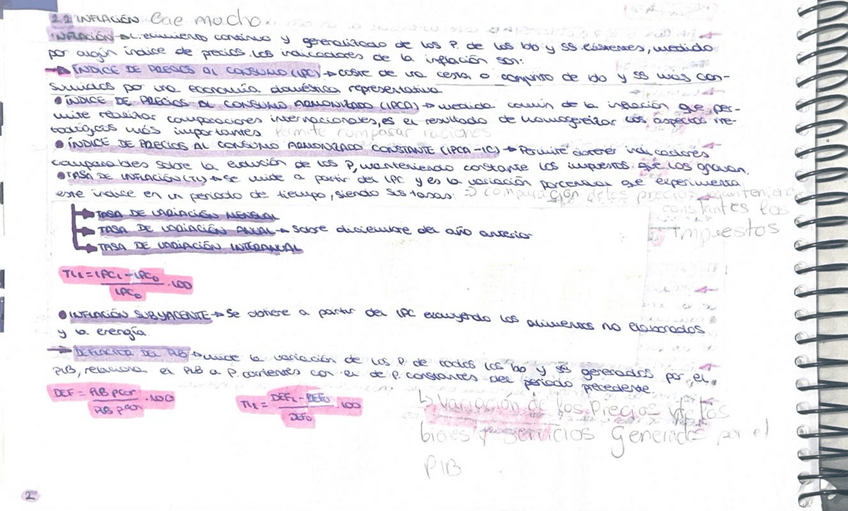 2.2 INFLACIÓN Cae mucho.
INFLACIÓN → Crecimiento continuo y generalizado de los P. de los bb y ss existentes, medido
por algún índice de precios. Los indicadores de la inflación son:
→ ÍNDICE DE PRECIOS AL CONSUMO (IPC) → coste de una cesta o conjunto de bb y ss más con-
sumidos por una economía doméstica representativa
• ÍNDICE DE PRECIOS AL CONSUMO ARMONIZADO (IPCA) → medida común de la inflación que per-
mite realizar comparaciones internacionales, es el resultado de homogeneizar los aspectos me-
todológicos más importantes Permite comparar naciones
• ÍNDICE DE PRECIOS AL CONSUMO ARMONIZADO CONSTANTE (IPCA-IC) → Permite obtener indicadores
comparables sobre la evolución de los P, manteniendo constante los impuestos que los gravan.
• TASA DE INFLACIÓN (TI) → Se mide a partir del IPC y es la variación porcentual que experimenta
este índice en un periodo de tiempo, siendo sus tasas: de los precios
constantes los
impuestos
TASA DE VARIACIÓN MENSUAL
TASA DE VARIACIÓN ANUAL → Sobre diciembre del año anterior
TASA DE VARIACIÓN INTERANUAL
TI₁ = IPC₁ - IPC₀ / IPC₀ · 100
• INFLACIÓN SUBYACENTE → Se obtiene a partir del IPC excluyendo los alimentos no elaborados
y la energía
→ DEFLACTOR DEL PIB → mide la variación de los P. de todos los bb y ss generados por el
PIB, relaciona el PIB a P. corrientes con el de P. constantes del periodo precedente.
DEF = PIB pcor / PIB pcon · 100
TI₁ = DEF₁ - DEF₀ / DEF₀ · 100
↳ Variación de los Precios de los
bienes y servicios Generados por el
PIB
2